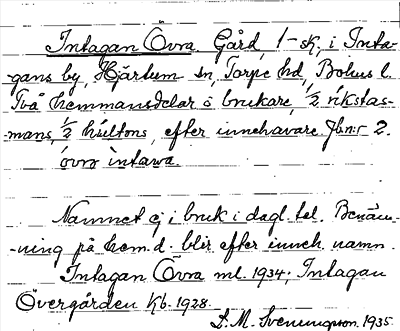 Intagan Övra. Gård, 1-sk, i Inta-
gans by, Hjärtum sn, Torpe hd, Bohus l.
Två hemmansdelar o brukare, 1/2 rikstas-
mans, 1/2 hultons, efter innehavare. Jbnr 2.
övra intawa.
Namnet ej i bruk i dagl. tal. Benäm-
-ning på hem.d. blir efter inneh. namn.
Intagan Övra ml. 1934; Intagan
Övergården Kb. 1928.
D. M. Svenungsson. 1935.